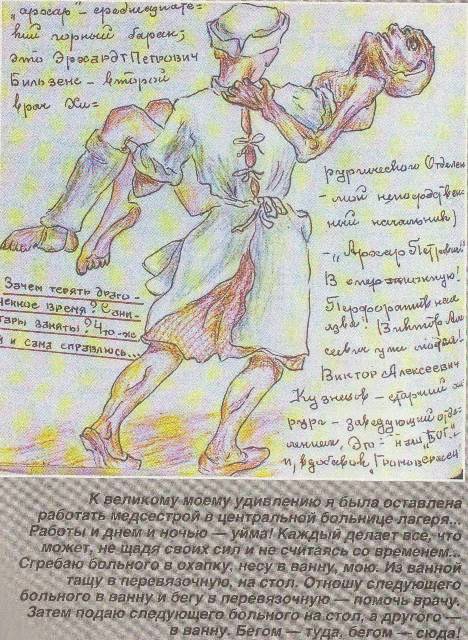 „Аросар" - среднеазиате=
кий горный баран;
это Эросардт Петрович
Бильзенс - второй
врач Хи=
рургического Отделен
- мой непосредствен
ный начальник)
- „Аросар Петрович!
В операционную!
Перфоративная
язва! Виктор Але
сеевич уже моется!
Виктор Алексеевич
Кузнецов - старший хи
рург - заведующий отде
лением. Это - наш „Бог"
и, вдобавок,
Зачем терять драго-
ценное время? Сани-
тары заняты! Что-ж
и сама справлюсь...
К великому моему удивлению я была оставлена
работать медсестрой в центральной больнице лагеря...
Работы и днем и ночью — уйма! Каждый делает все, что
может, не щадя своих сил и не считаясь со временем...
Сгребаю больного в охапку, несу в ванну, мою. Из ванной
тащу в перевязочную, на стол. Отношу следующего
больного в ванну и бегу в перевязочную — помочь врачу.
Затем подаю следующего больного на стол, а другого —
в ванну. Бегом — туда, бегом — сюда